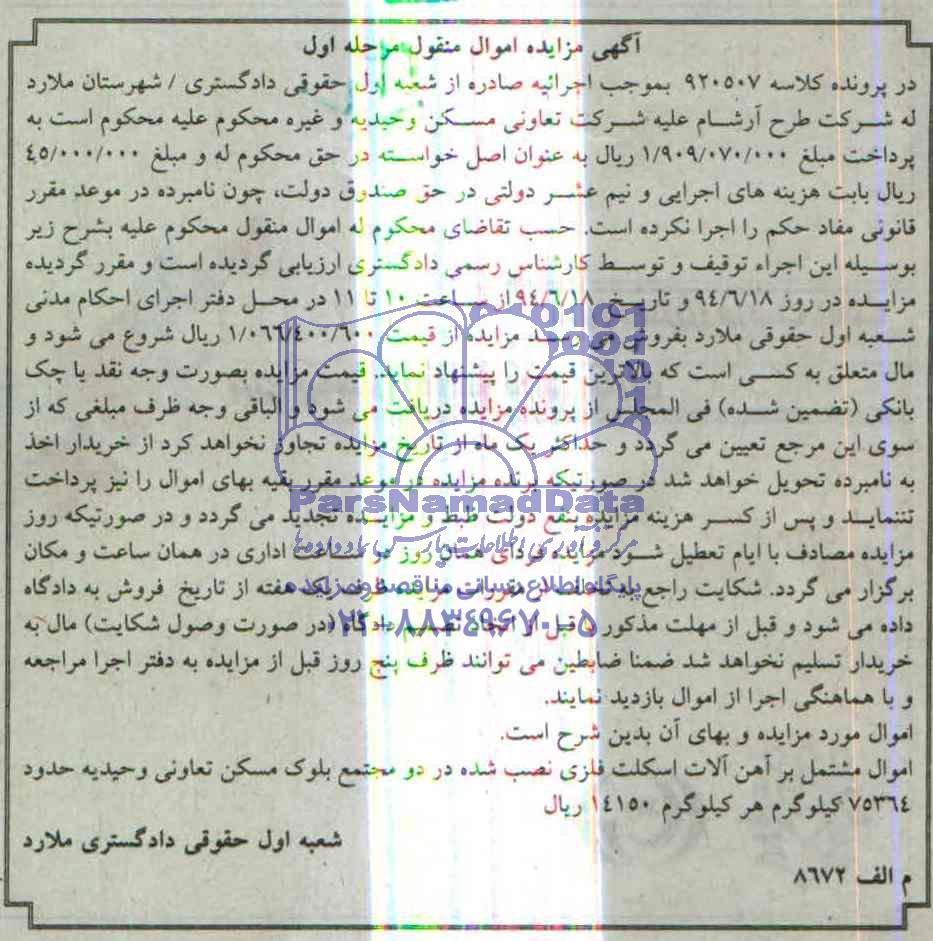 آگهی مزایده اموال منقول مرحله اول
در پرونده کلاسه ۹۲۰۵۰۷ بموجب اجرائیه صادره از شعبه اول حقوقی دادگستری / شهرستان ملارد
له شرکت طرح آرشام علیه شرکت تعاونی مسکن وحیدیه و غیره محکوم علیه محکوم است به
پرداخت مبلغ ۱/۹۰۹/۰۷۰/۰۰۰ ریال به عنوان اصل خواسته در حق محکوم له و مبلغ ۴۵/۰۰۰/۰۰۰
ریال بابت هزینه های اجرایی و نیم عشر دولتی در حق صندوق دولت، چون نامبرده در موعد مقرر
قانونی مفاد حکم را اجرا نکرده است. حسب تقاضای محکوم له اموال منقول محکوم علیه بشرح زیر
بوسیله این اجراء توقیف و توسط کارشناس رسمی دادگستری ارزیابی گردیده است و مقرر گردیده
مزایده در روز ۹۴/۶/۱۸ و تاریخ ۹۴/۶/۱۸ از ساعت ۱۰ تا ۱۱ در محل دفتر اجرای احکام مدنی
شعبه اول حقوقی ملارد بفروش می رسد مزایده از قیمت ۱/۰۶۶/۴۰۰/۶۰۰ ریال شروع می شود و
مال متعلق به کسی است که بالاترین قیمت را پیشنهاد نماید. قیمت مزایده بصورت وجه نقد یا چک
بانکی (تضمین شده) فی المجلس از پرونده مزایده دریافت می شود و الباقی وجه ظرف مبلغی که از
سوی این مرجع تعیین می گردد و حداکثر یک ماه از تاریخ مزایده تجاوز نخواهد کرد از خریدار اخذ
به نامبرده تحویل خواهد شد در صورتیکه برنده مزایده در موعد مقرر بقیه بهای اموال را نیز پرداخت
ParsNamadData
تننماید و پس از کسر هزینه مزایده بنفع دولت ظبط و مزایده تجدید می گردد و در صورتیکه روز
مزایده مصادف با ایام تعطیل شود مزایده فردای همان روز در ساعت اداری در همان ساعت و مکان
برگزار می گردد. شکایت راجع به تخلف از مقررات مزایده ظرف یک هفته از تاریخ فروش به دادگاه
پایگاه اطلاع رسانی مناقصه و مزایده
داده می شود و قبل از مهلت مذکور و قبل از اتخاذ تصمیم دادگاه (در صورت وصول شکایت) مال به
۰۲۱-۸۸۳۴۹۶۷۰-۵
خریدار تسلیم نخواهد شد ضمنا ضابطین می توانند ظرف پنج روز قبل از مزایده به دفتر اجرا مراجعه
و با هماهنگی اجرا از اموال بازدید نمایند.
اموال مورد مزایده و بهای آن بدین شرح است.
اموال مشتمل بر آهن آلات اسکلت فلزی نصب شده در دو مجتمع بلوک مسکن تعاونی وحیدیه حدود
۷۵۳۶۴ کیلوگرم هر کیلوگرم ۱۴۱۵۰ ریال
شعبه اول حقوقی دادگستری ملارد
م الف ۸۶۷۲